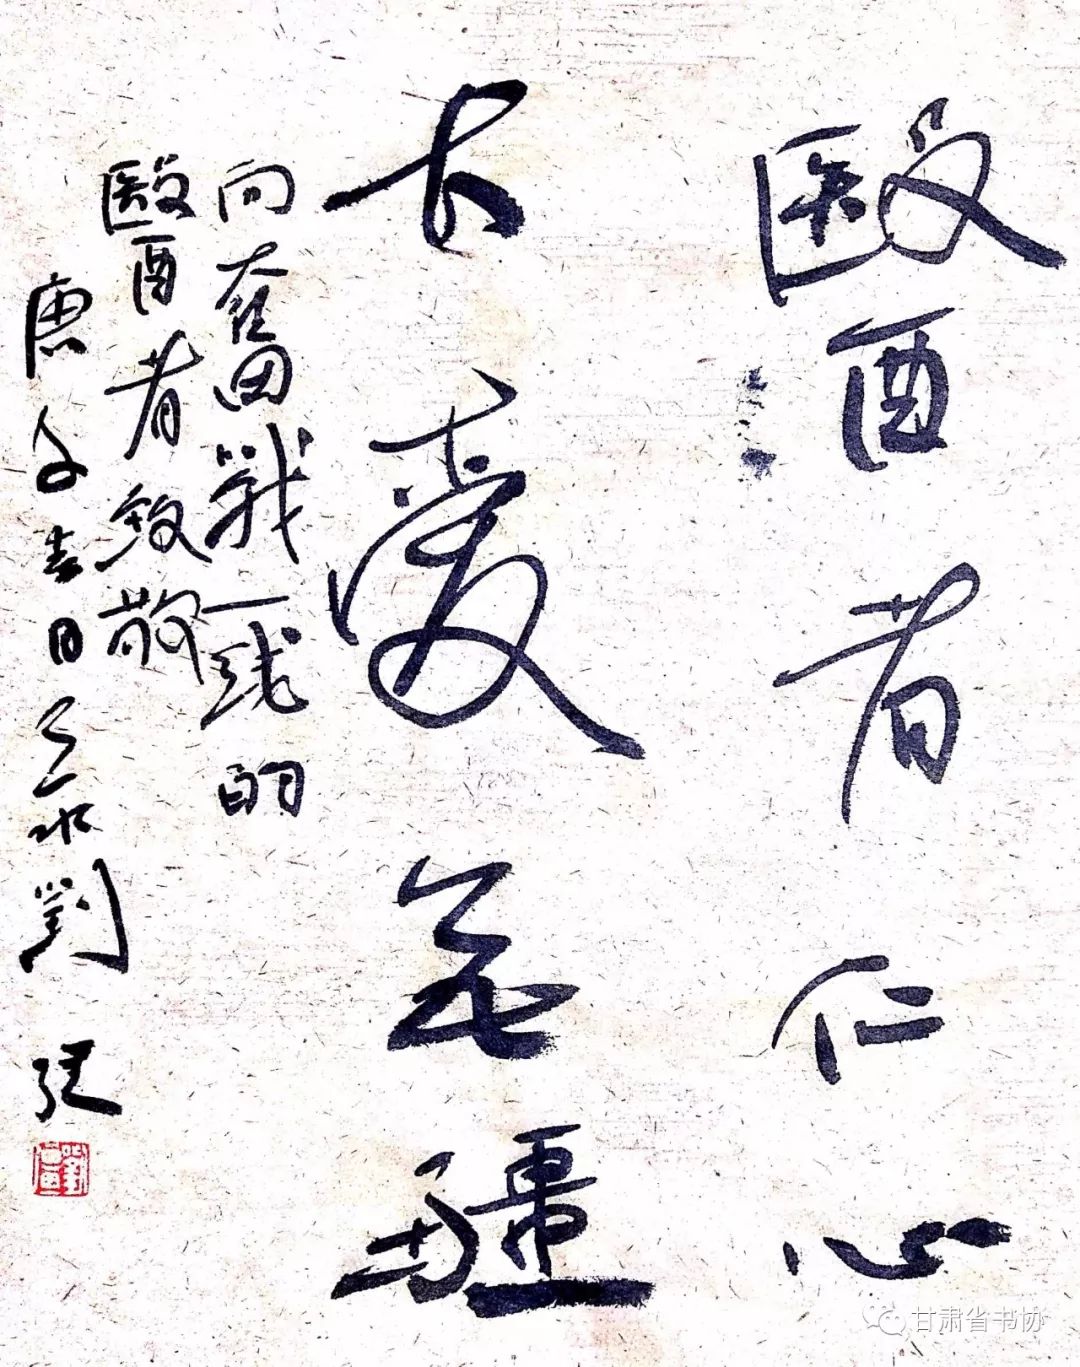 醫者仁心
大愛無疆
向奮戰一线的
醫者致敬
庚子春日天水劉
甘肃省书协